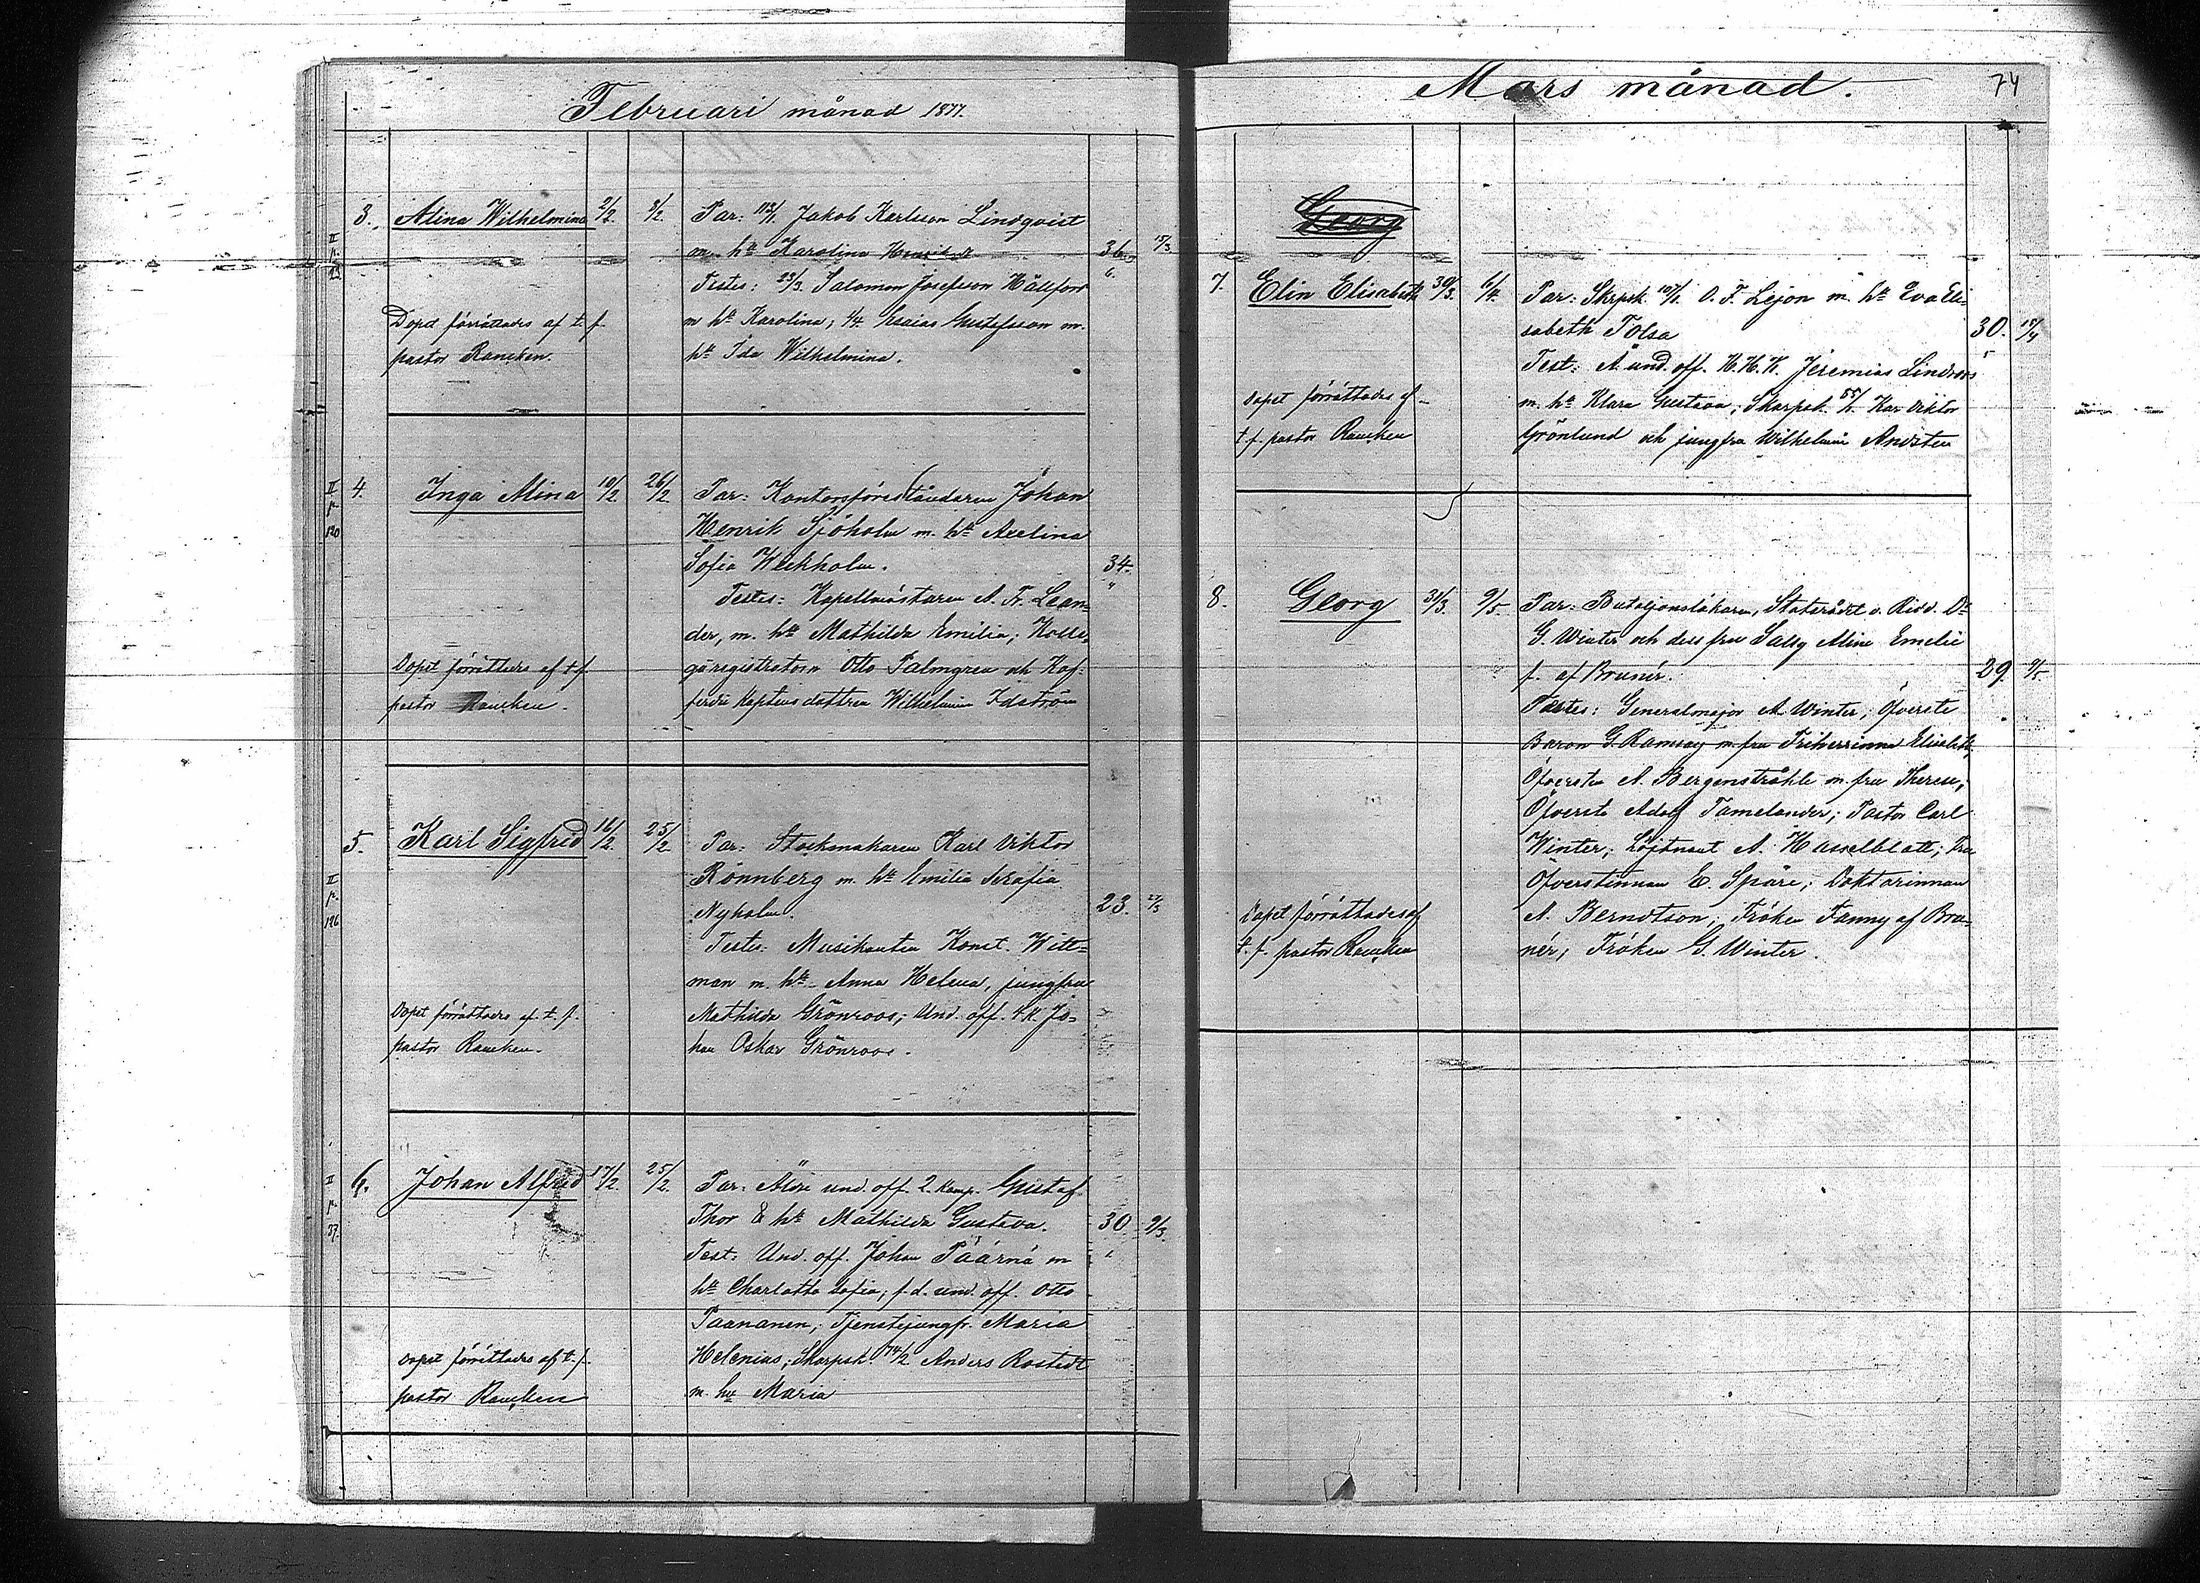 Februari månad 1877.
3. Alina Wilhelmina 2/2 8/2 Par: 112/1 Jakob Karlsson Lindqvist
m. h:u Karolina 36. 15/3
Testes: 23/3 Salomon Josefsson Hällfors
m h:u Karolina, 1/4 Esaias Gustafsson m.
h:u Ida Wilhelmina.
Dopet förrättades af t. f.
pastor Rancken.
II
p.
4. Inga Alina 10/2 26/2 Par: Kontorsföreståndaren Johan
Henrik Sjöholm m. h:u Axelina
Sofia Weckholm. 34.
Testes: Kapellmästaren A. Fr. Lean-
der, m. h:u Mathilda Emilia; Kolle-
giiregistratorn Otto Palmgren och Kof-
ferdie Kaptens dottren Wilhelmina Idström
Dopet förrättades af t. f.
pastor Rancken.
II
p.
120
5. Karl Sigfrid 16/2 25/2 Par: Stockmakaren Karl Viktor
Rönnberg m. h:u Emilia Serafia
Nyholm. 23.
Testes: Musikanten Konst. Witt-
man m. h:u Anna Helena, jungfru
Mathilda Grönroos; Und. off. 4 K. Jo-
han Oskar Grönroos.
Dopet förrättades af t. f.
pastor Rancken.
II
p.
126
6. Johan Alfred 17/2 25/2 Par: Äldre und. off. 2. komp. Gustaf
Thor & h:u Mathilda Gustava. 30 9/3
Test: Und. off. Johan Päärnä m
h:u Charlotta Sofia; f.d. und. off. Otto
Paananen; Tjenstejungfr. Maria
Helenius; Skarpsk. 74/2 Anders Rostedt
m. hu Maria
Dopet förrättades af t. f.
pastor Rancken
II
p.
37.
Mars månad. 74
Georg
7. Elin Elisabeth 30/3 6/4 Par: Skrpsk. 107/1 O. F. Lejon m. h:u Eva Eli-
sabeth Tolsa 30. 15/4
Test: Ä und. off. H. H. K. Jeremias Lindroos
m. h:u Klara Gustava; Skarpsk. 55/1 Kar Viktor
Grönlund och jungfru Wilhelmina Andsten
Dopet förrättades af
t. f. pastor Rancken
8. Georg 31/3 9/5 Par: Bataljonsläkaren, Statsrådet o. Ridd. Dr
G. Winter och dess fru Sally Alina Emelie
f. af Brunér. 29. 9/5
Testes: Generalmajor A Winter; Öfverste
Baron G. Ramsay m. fru Friherrinna Elisabeth;
Öfversten A. Bergenstråhle m. fru Therese;
Öfverste Adolf Tamelander; Pastor Carl
Winter; Löjtnant A. Hasselblatt; Fru
Öfverstinnan E. Spåre; Doktorinnan
A. Berndtson; Fröken Fanny af Bru-
nér; Fröken G. Winter.
Dopet förrättades af
t. f. pastor Rancken